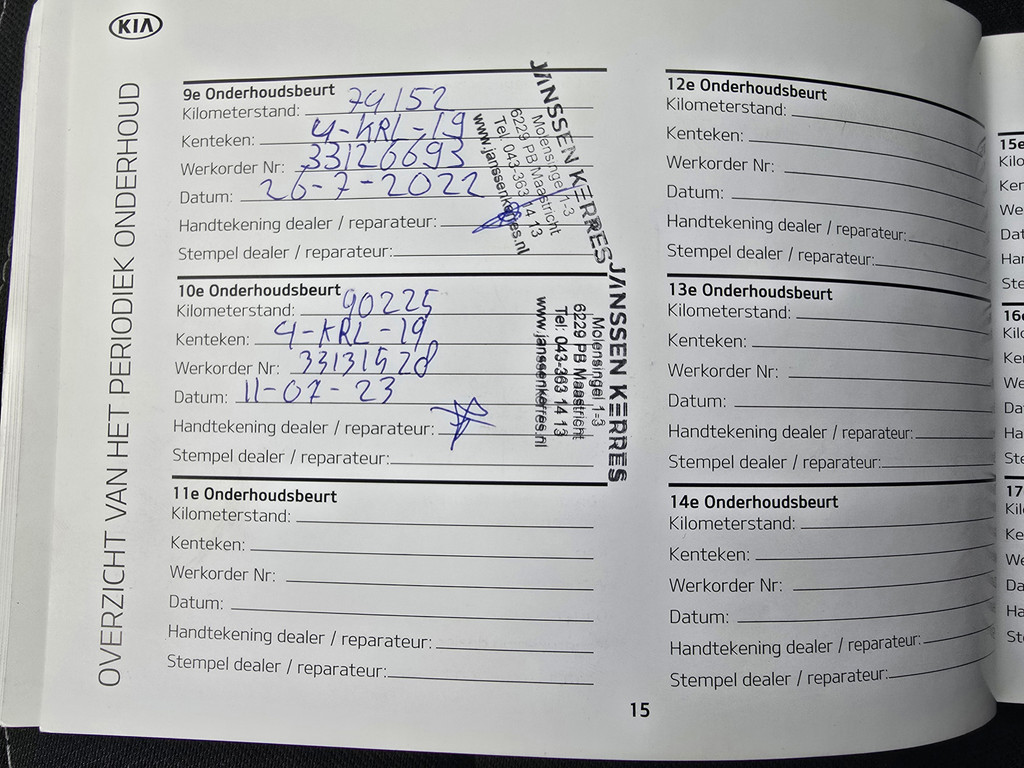 KIA
OVERZICHT VAN HET PERIODIEK ONDERHOUD
9e Onderhoudsbeurt
Kilometerstand: 74152
Kenteken: 4-KRL-19
Werkorder Nr: 33126693
Datum: 26-7-2022
Handtekening dealer / reparateur:
Stempel dealer / reparateur:
JANSSEN KERRES
Molensingel 1-3
6229 PB Maastricht
Tel: 043-363 14 13
www.janssenkerres.nl
10e Onderhoudsbeurt
Kilometerstand: 90225
Kenteken: 4-KRL-19
Werkorder Nr: 33131528
Datum: 11-07-23
Handtekening dealer / reparateur:
Stempel dealer / reparateur:
JANSSEN KERRES
Molensingel 1-3
6229 PB Maastricht
Tel: 043-363 14 13
www.janssenkerres.nl
11e Onderhoudsbeurt
Kilometerstand:
Kenteken:
Werkorder Nr:
Datum:
Handtekening dealer / reparateur:
Stempel dealer / reparateur:
12e Onderhoudsbeurt
Kilometerstand:
Kenteken:
Werkorder Nr:
Datum:
Handtekening dealer / reparateur:
Stempel dealer / reparateur:
13e Onderhoudsbeurt
Kilometerstand:
Kenteken:
Werkorder Nr:
Datum:
Handtekening dealer / reparateur:
Stempel dealer / reparateur:
14e Onderhoudsbeurt
Kilometerstand:
Kenteken:
Werkorder Nr:
Datum:
Handtekening dealer / reparateur:
Stempel dealer / reparateur:
15
15e
Kilo
Ken
We
Dat
Han
Ste
16e
Kilo
Ken
We
Da
Ha
Ste
17
Kil
Ke
We
Da
Ha
St